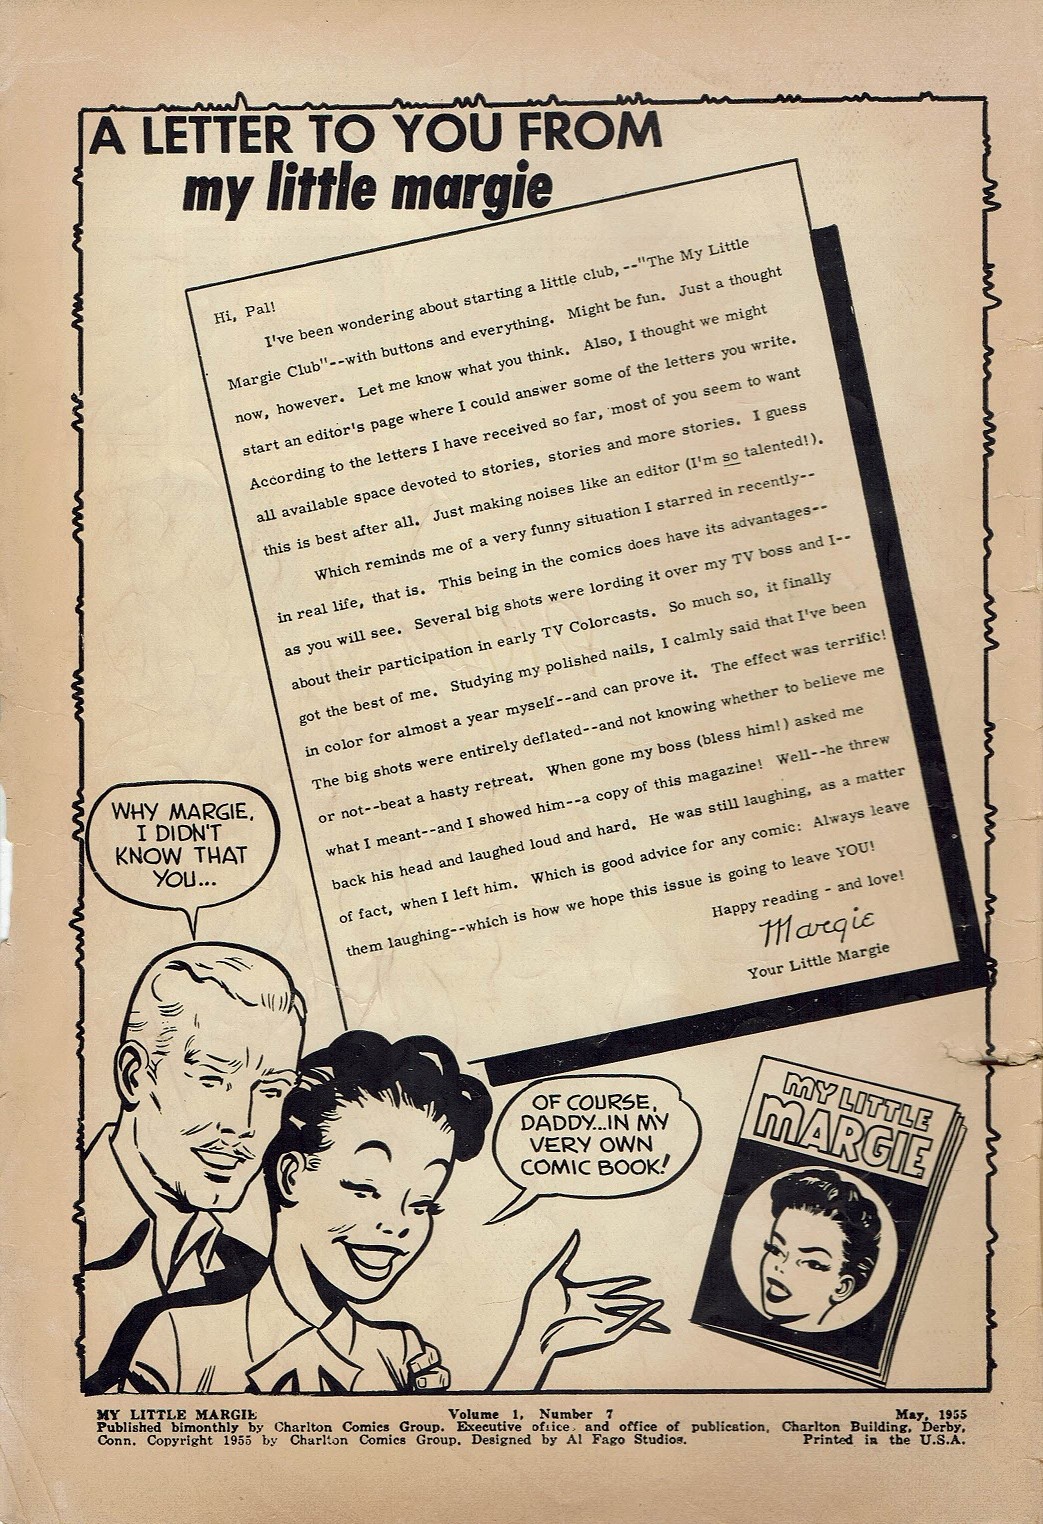 A LETTER TO YOU FROM
my little margie
Hi, Pal!
I've been wondering about starting a little club,--"The My Little
Margie Club"--with buttons and everything. Might be fun. Just a thought
now, however. Let me know what you think. Also, I thought we might
start an editor's page where I could answer some of the letters you write.
According to the letters I have received so far, most of you seem to want
all available space devoted to stories, stories and more stories. I guess
this is best after all. Just making noises like an editor (I'm so talented!).
Which reminds me of a very funny situation I starred in recently--
in real life, that is. This being in the comics does have its advantages--
as you will see. Several big shots were lording it over my TV boss and I--
about their participation in early TV Colorcasts. So much so, it finally
got the best of me. Studying my polished nails, I calmly said that I've been
in color for almost a year myself--and can prove it. The effect was terrific!
The big shots were entirely deflated--and not knowing whether to believe me
or not--beat a hasty retreat. When gone my boss (bless him!) asked me
what I meant--and I showed him--a copy of this magazine! Well--he threw
back his head and laughed loud and hard. He was still laughing, as a matter
of fact, when I left him. Which is good advice for any comic: Always leave
them laughing--which is how we hope this issue is going to leave YOU!
Happy reading - and love!
Margie
Your Little Margie
WHY MARGIE,
I DIDN'T
KNOW THAT
YOU...
OF COURSE,
DADDY...IN MY
VERY OWN
COMIC BOOK!
MY LITTLE
MARGIE
MY LITTLE MARGIE Volume 1, Number 7 May, 1955
Published bimonthly by Charlton Comics Group. Executive offices and office of publication, Charlton Building, Derby,
Conn. Copyright 1955 by Charlton Comics Group. Designed by Al Fago Studios. Printed in the U.S.A.